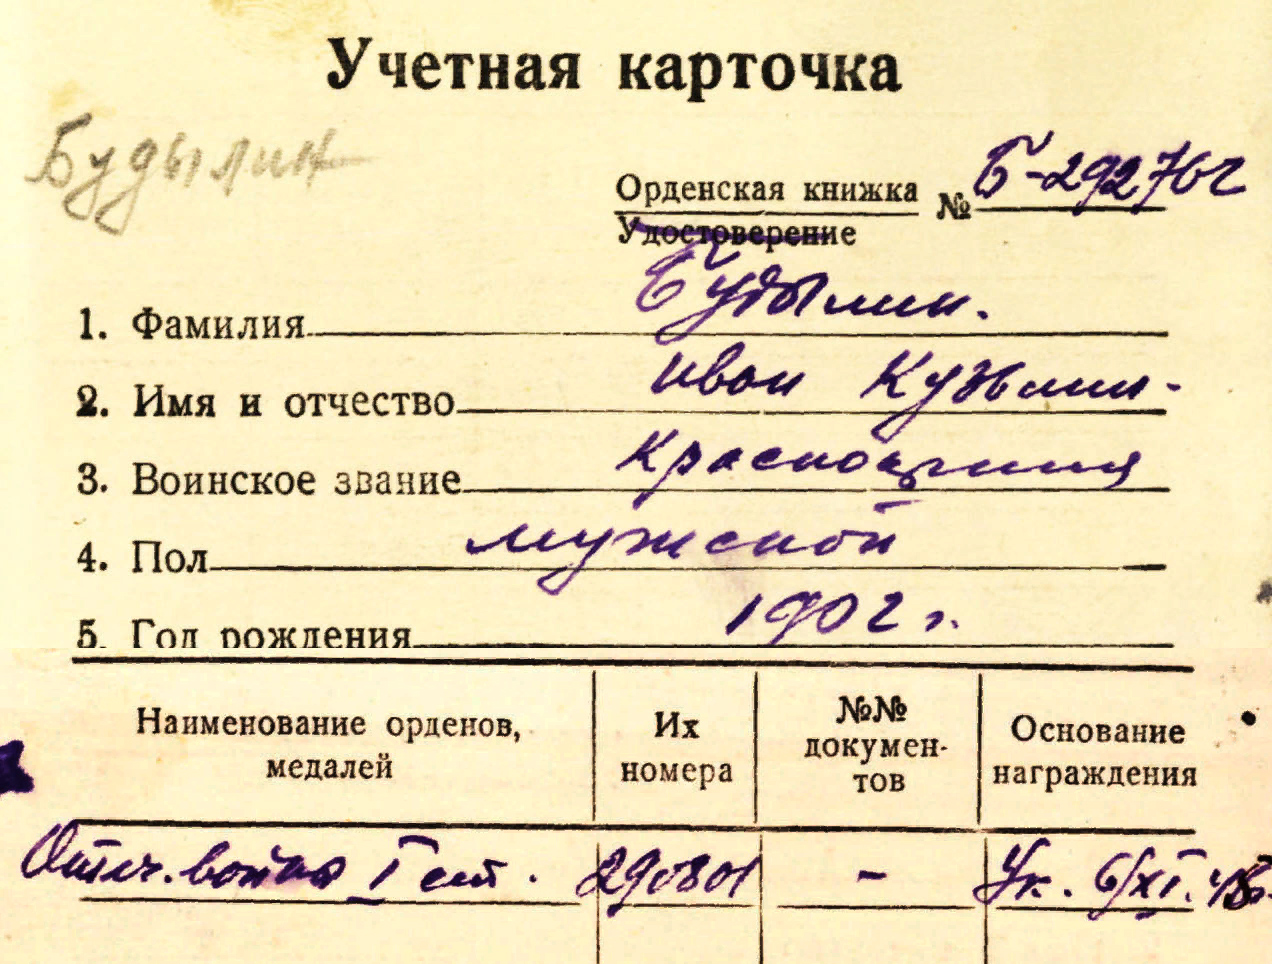 Учетная карточка
Будылин
Орденская книжка № Б-292762
Удостоверение
1. Фамилия Будылин.
2. Имя и отчество Иван Кузьмич-
3. Воинское звание
4. Пол мужской
5. Год рождения 1902 г.
Наименование орденов, медалей
Их номера
№№ докумен-тов
Основание награждения
Отеч. войны I ст. 290801 - Ук. 6/XI.